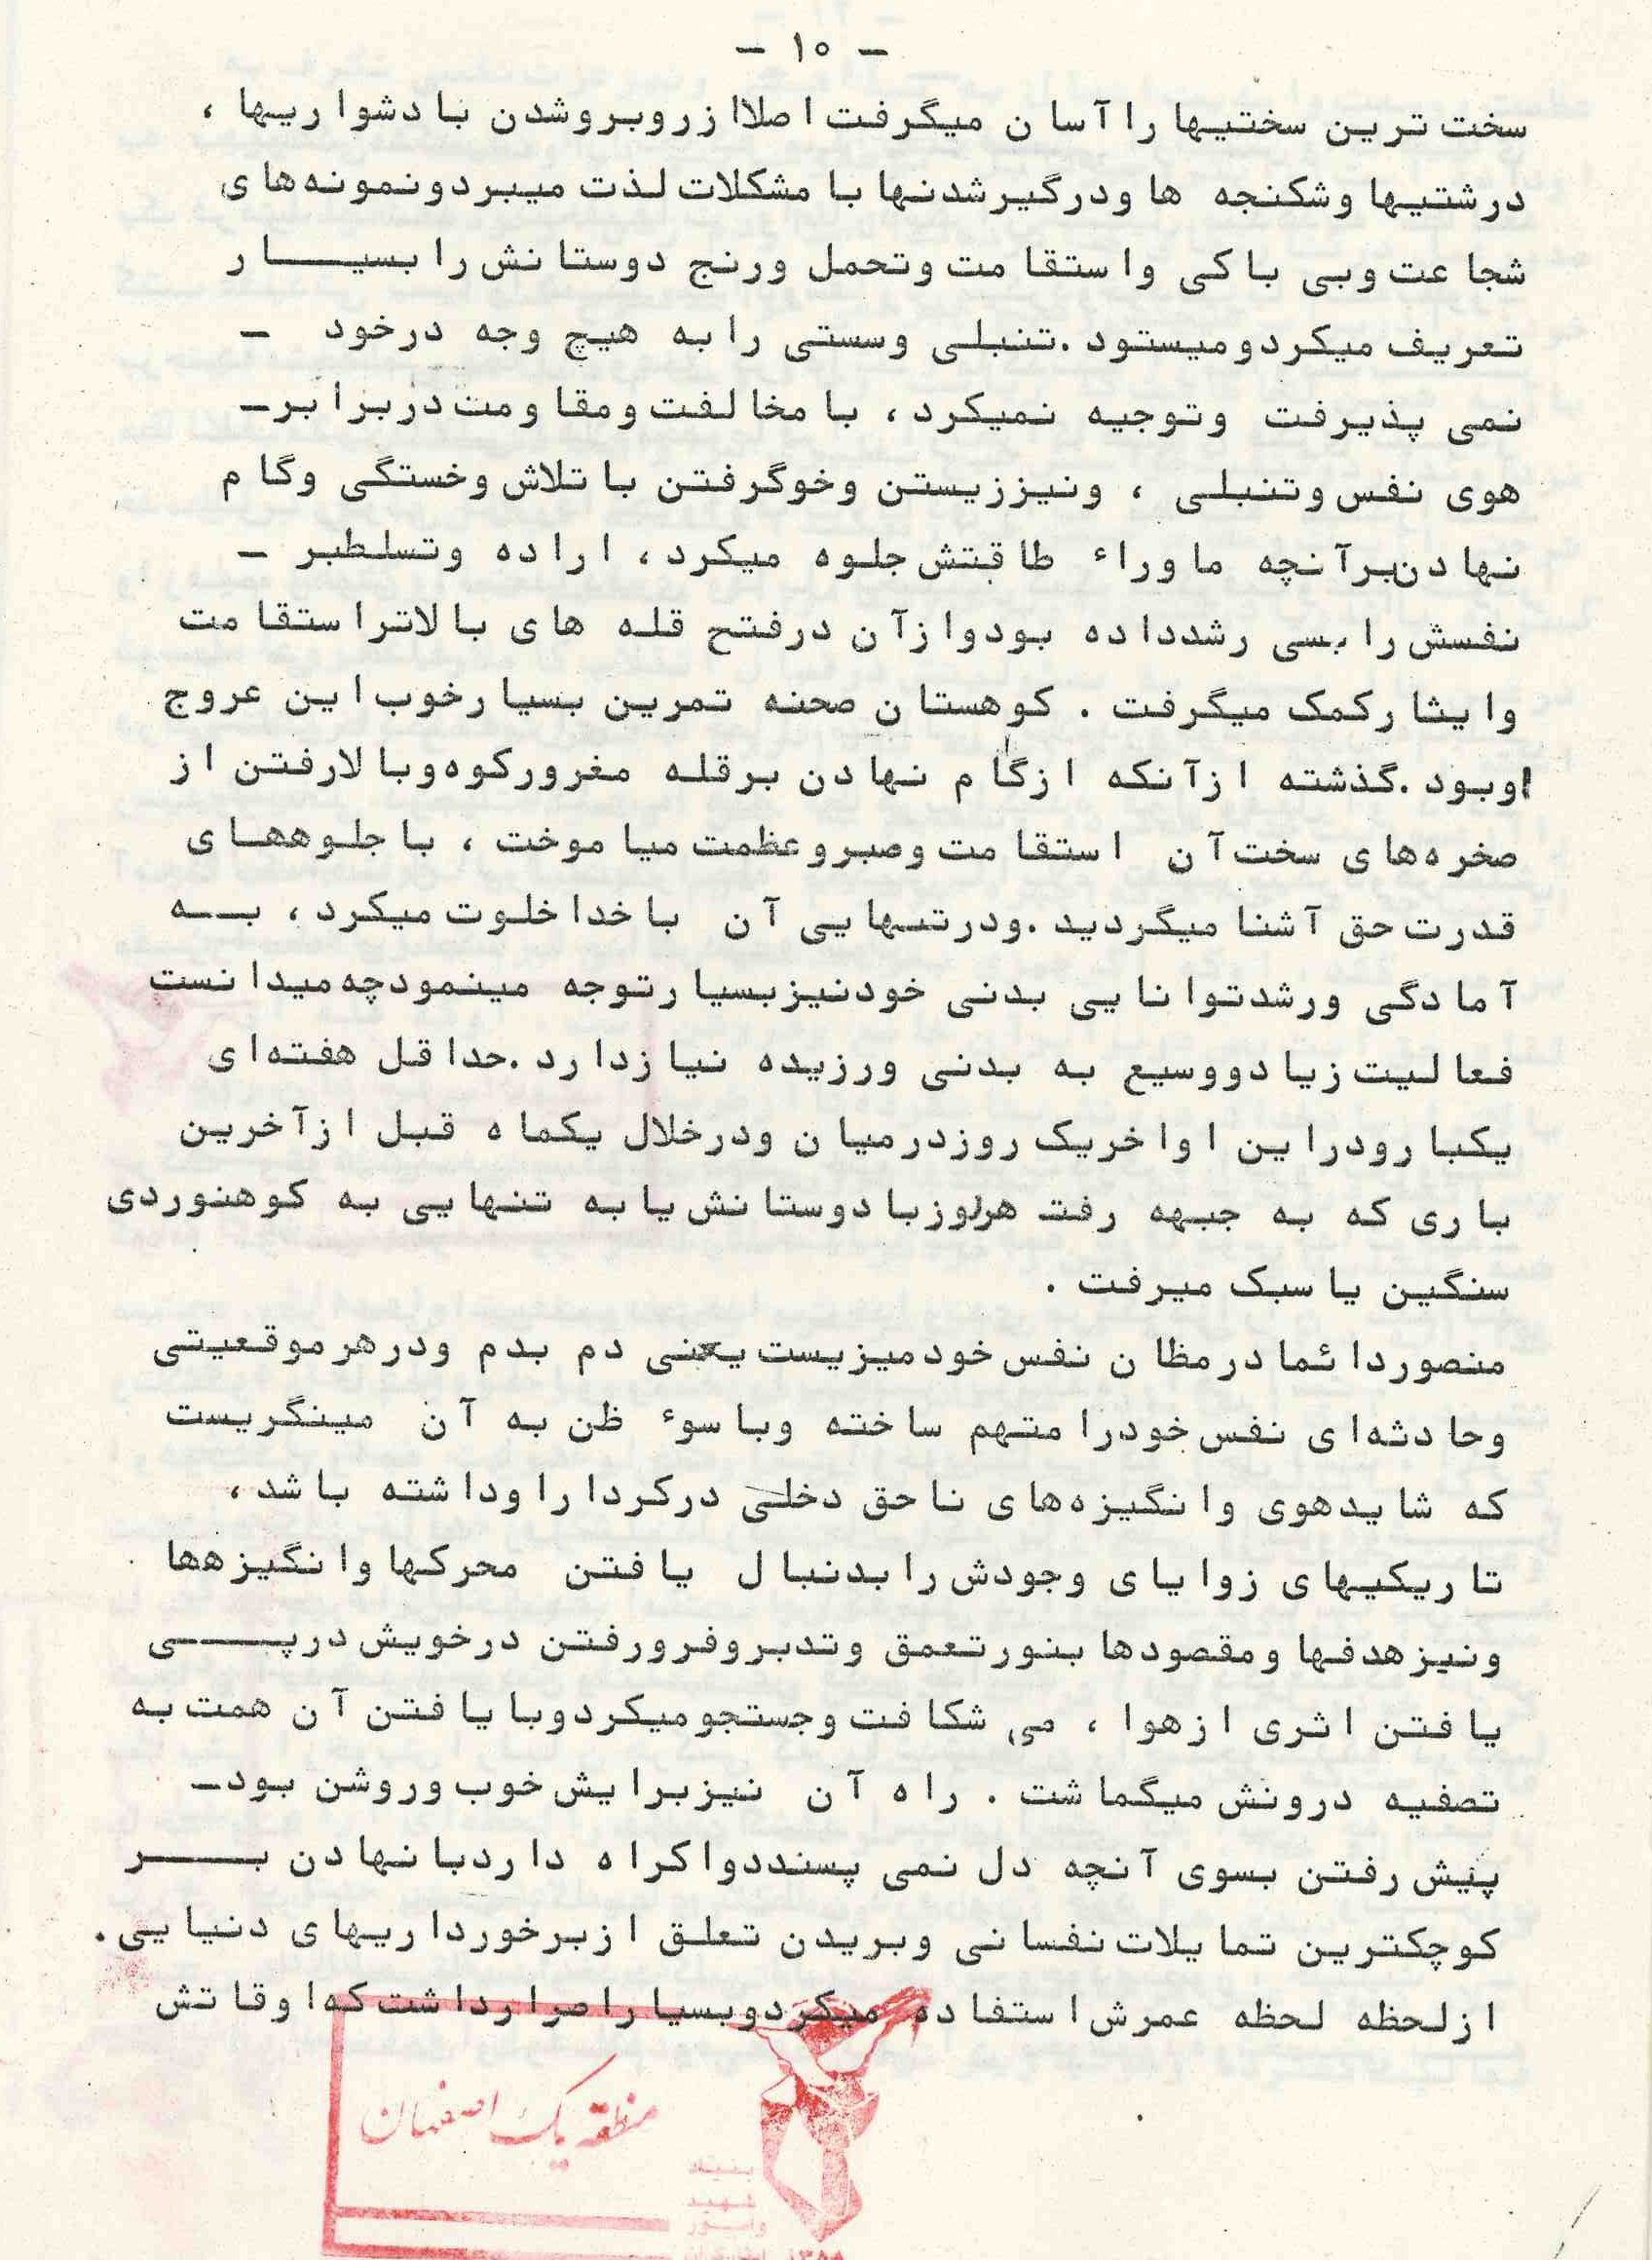 - ۱۰ -
سخت ترین سختیها را آسان میگرفت اصلا از روبرو شدن با دشواریها ،
درشتیها وشکنجه ها ودرگیرشدنها با مشکلات لذت میبرد ونمونه‌های
شجاعت وبی باکی واستقامت وتحمل ورنج دوستانش را بسیار
تعریف میکرد ومیستود .تنبلی وسستی را به هیچ وجه درخود -
نمی پذیرفت وتوجیه نمیکرد ، با مخالفت ومقاومت دربرابر-
هوی نفس وتنبلی ، ونیززیستن وخوگرفتن با تلاش وخستگی وگام
نهادن برآنچه ماوراء طاقتش جلوه میکرد ، اراده وتسلط بر -
نفسش را بسی رشدداده بود وازآن درفتح قله های بالاتراستقامت
وایثارکمک میگرفت . کوهستان صحنه تمرین بسیارخوب این عروج
اوبود .گذشته ازآنکه ازگام نهادن برقله مغرورکوه وبالارفتن از
صخره‌های سخت آن استقامت وصبر وعظمت میاموخت ، با جلوه‌های
قدرت حق آشنا میگردید .ودرتنهایی آن با خدا خلوت میکرد ، به
آمادگی ورشدتوانایی بدنی خودنیزبسیارتوجه مینمودچه میدانست
فعالیت زیادووسیع به بدنی ورزیده نیازدارد .حداقل هفته‌ای
یکبارودراین اواخریک روزدرمیان ودرخلال یکماه قبل ازآخرین
باری که به جبهه رفت هرروزبا دوستانش یا به تنهایی به کوهنوردی
سنگین یا سبک میرفت .
منصوردائما درمظان نفس خودمیزیست یعنی دم بدم ودرهرموقعیتی
وحادثه‌ای نفس خودرا متهم ساخته وبا سوء ظن به آن مینگریست
که شایدهوی وانگیزه‌های ناحق دخلی درکرداراوداشته باشد ،
تاریکیهای زوایای وجودش را بدنبال یافتن محرکها وانگیزه‌ها
ونیزهدفها ومقصودها بنورتعمق وتدبروفرورفتن درخویش درپی
یافتن اثری ازهوا ، می شکافت وجستجومیکردوبا یافتن آن همت به
تصفیه درونش میگماشت . راه آن نیزبرایش خوب وروشن بود-
پیش رفتن بسوی آنچه دل نمی پسنددواکراه داردبا نهادن بر
کوچکترین تمایلات نفسانی وبریدن تعلق ازبرخورداریهای دنیایی.
ازلحظه لحظه عمرش استفاده میکردوبسیاراصرارداشت که اوقاتش
منطقه یک اصفهان
بنیاد
شهید